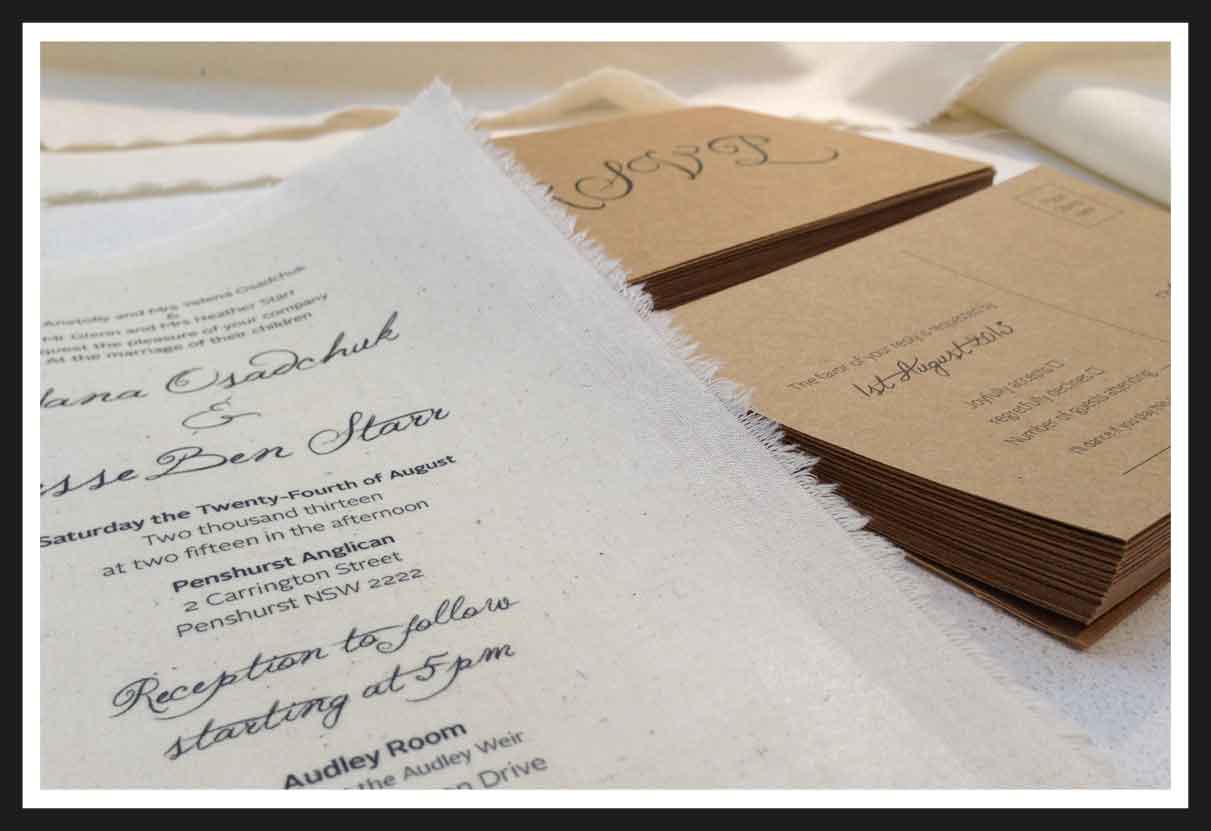 Anatolly and Mrs Yelena Osadchuk
&
Mr Glenn and Mrs Heather Starr
quest the pleasure of your company
At the marriage of their children
lana Osadchuk
&
esse Ben Starr
Saturday the Twenty-Fourth of August
Two thousand thirteen
at two fifteen in the afternoon
Penshurst Anglican
2 Carrington Street
Penshurst NSW 2222
Reception to follow
starting at 5pm
Audley Room
the Audley Weir
Drive
RSVP
The favor of your reply is requested by
1st August 2013
joyfully accepts
regretfully declines
Number of guests attending